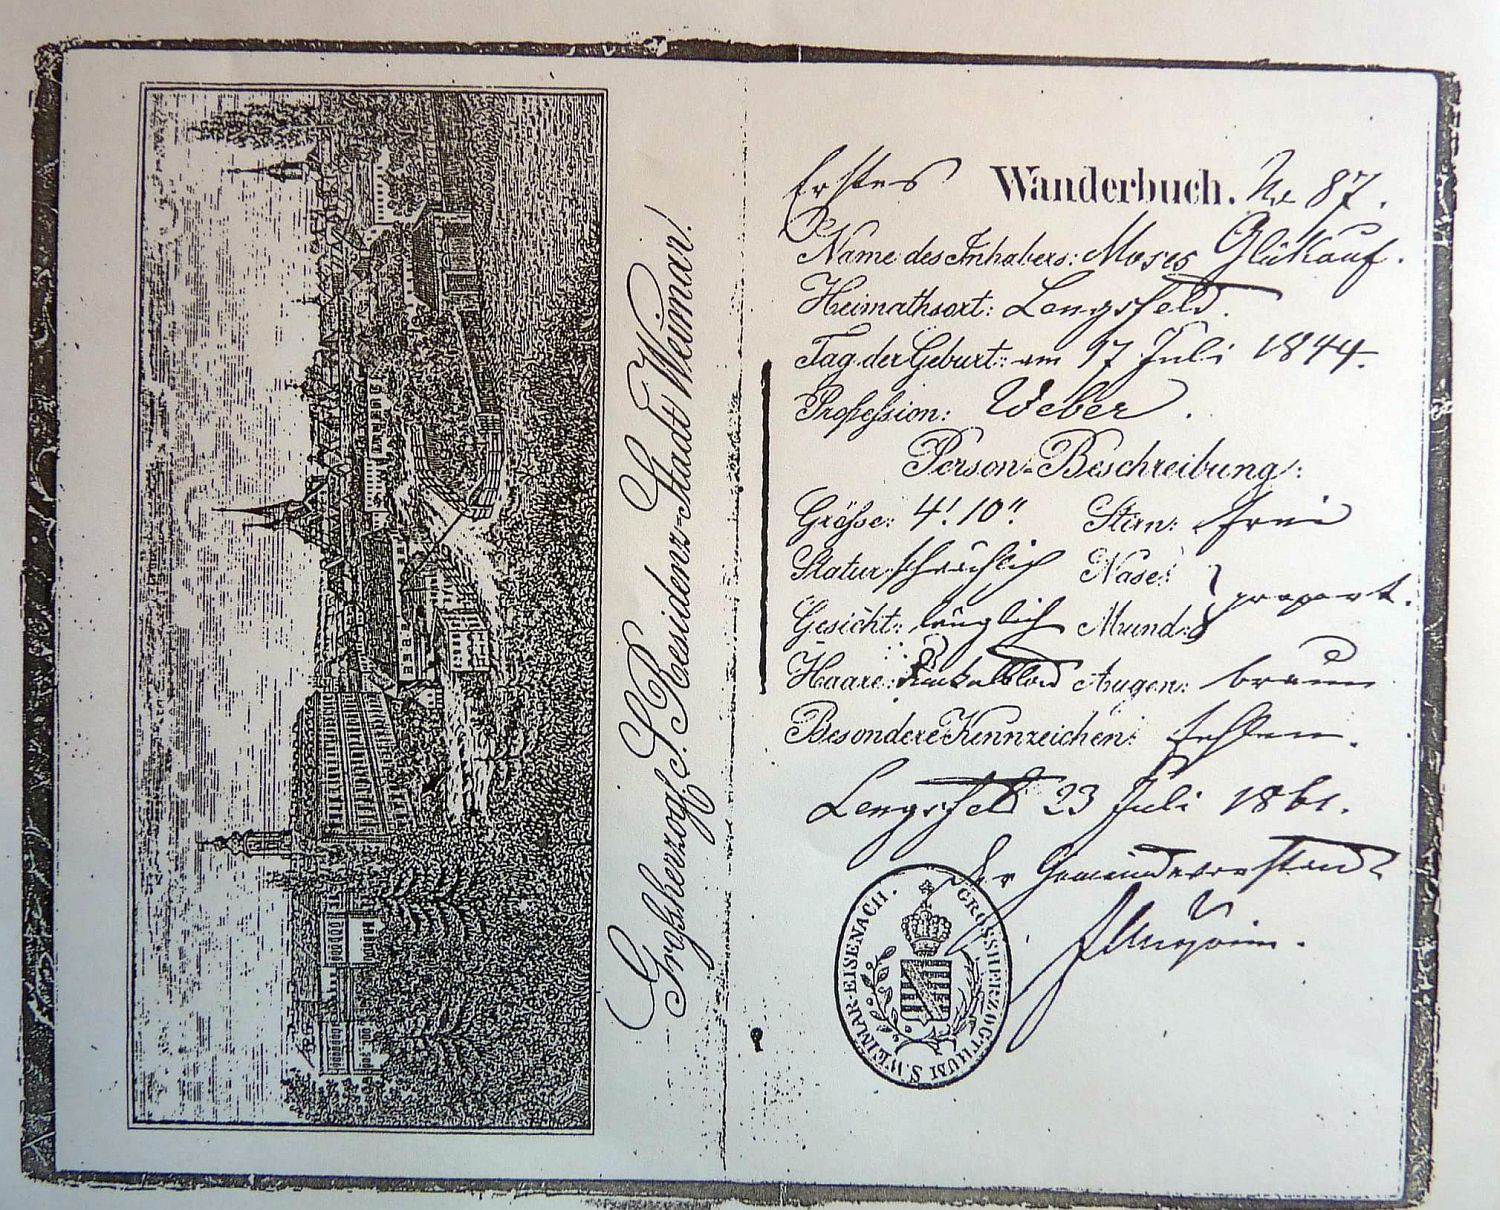 Großherzogl. S. Residenz-Stadt Weimar.
Erstes Wanderbuch. No 87.
Name des Inhabers: Moses Glükauf.
Heimathsort: Lengsfeld.
Tag der Geburt: am 17 Juli 1844.
Profession: Weber.
Person-Beschreibung:
Größe: 4' 10" Stirn: frei
Statur: schwächlich Nase: } proport.
Gesicht: länglich Mund:
Haare: dunkelblond Augen: braun
Besondere Kennzeichen: fehlen.
Lengsfeld 23 Juli 1861.
Der Gemeindevorstand
GROSSHERZOGTHUM S. WEIMAR-EISENACH.